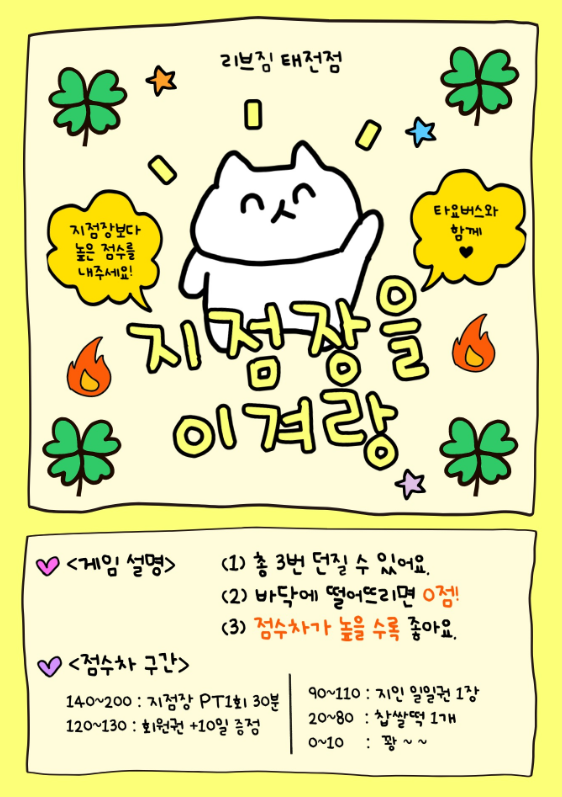 리브짐 태전점
지점장보다
높은 점수를
내주세요!
타요버스와
함께
♥
지점장을
이겨랑
<게임 설명>
(1) 총 3번 던질 수 있어요.
(2) 바닥에 떨어뜨리면 0점!
(3) 점수차가 높을 수록 좋아요.
<점수차 구간>
140~200 : 지점장 PT1회 30분
120~130 : 회원권 +10일 증정
90~110 : 지인 일일권 1장
20~80 : 찹쌀떡 1개
0~10 : 꽝 ~ ~